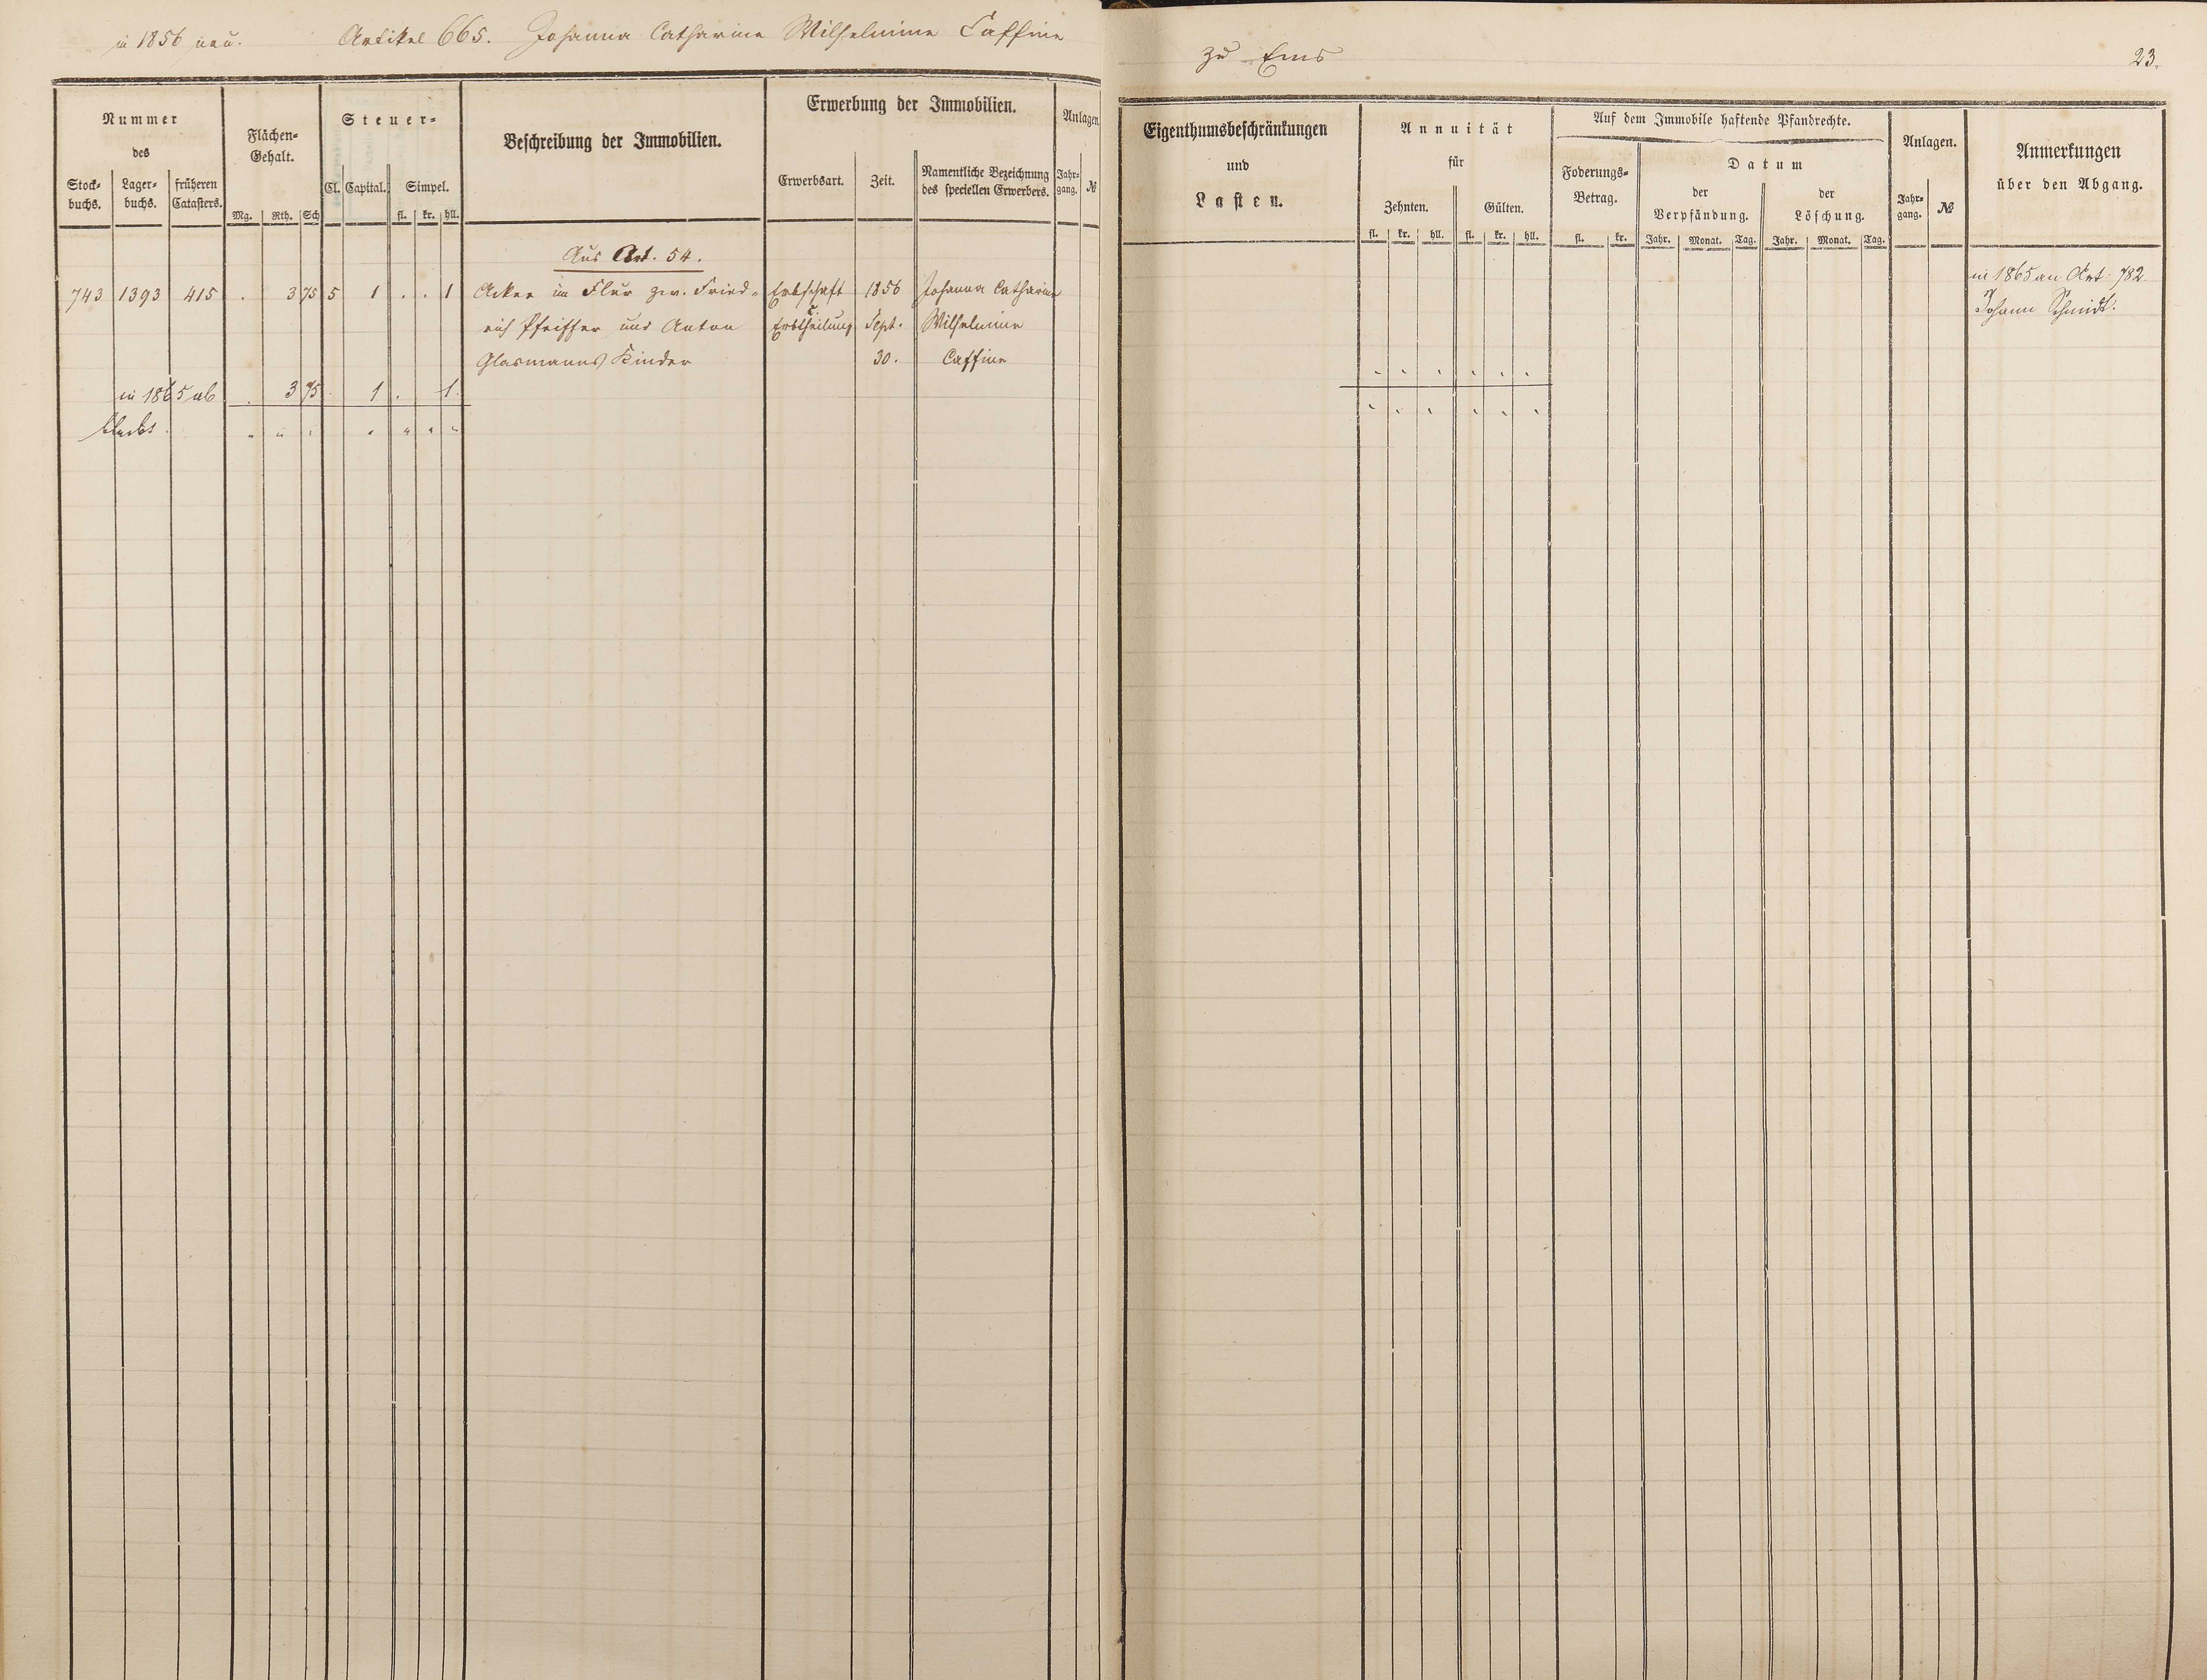 in 1856 neu. Artikel 665. Johanna Catharine Wilhelmine Caffine
zu Ems 23.
Nummer
des
Stock-
buchs.
Lager-
buchs.
früheren
Catasters.
Flächen-
Gehalt.
Mg. Rth. Sch
Steuer-
Cl. Capital. Simpel.
fl. kr. hll.
Beschreibung der Immobilien.
Erwerbung der Immobilien.
Erwerbsart. Zeit.
Namentliche Bezeichnung
des speciellen Erwerbers.
Anlagen.
Jahr-
gang.
№
Eigenthumsbeschränkungen
und
Lasten.
Annuität
für
Zehnten. Gülten.
fl. kr. hll. fl. kr. hll.
Auf dem Immobile haftende Pfandrechte.
Foderungs-
Betrag.
fl. kr.
Datum
der
Verpfändung.
der
Löschung.
Jahr. Monat. Tag. Jahr. Monat. Tag.
Anlagen.
Jahr-
gang.
№
Anmerkungen
über den Abgang.
Aus Art. 54.
743 1393 415 . 3 75 5 1 . . 1 Acker im Flur zw. Fried- Erbschaft 1856 Johanna Catharine
eich Pfeiffer und Anton u. Erbtheilung Sept. Wilhelmine
Glasmanns Kinder 30. Caffine
in 1865 ab . 3 75 1 . 1
bleibt.
in 1865 an Art. 782
Johann Schmidt.